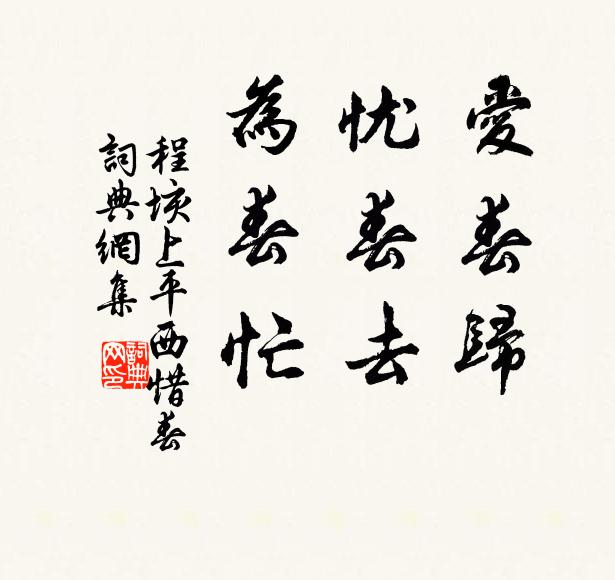 愛春歸
忧春去
為春忙
程垓上平西惜春
詞典網集
詞典网印